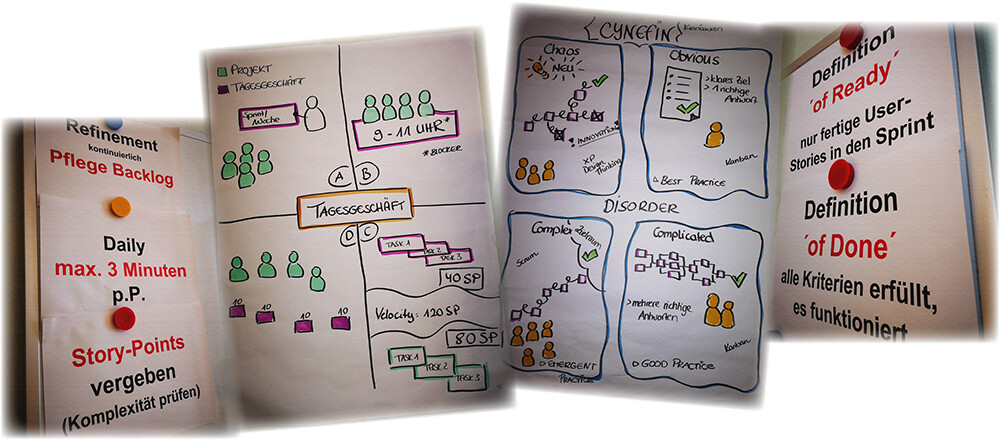 Refinement
kontinuierlich
Pflege Backlog
Daily
max. 3 Minuten
p.P.
Story-Points
vergeben
(Komplexität prüfen)
PROJEKT
TAGESGESCHÄFT
Sprint/
Woche
9-11 UHR*
*BLOCKER
A
B
TAGESGESCHÄFT
D
C
10
10
10
10
TASK 1
TASK 2
TASK 3
40 SP
Velocity: 120 SP
80 SP
TASK 1
TASK 2
TASK 3
CYNEFIN
Chaos
NEU
INNOVATION
XP
Design
Thinking
Obvious
> klares Ziel
> 1 richtige
Antwort
Kanban
▷ BEST PRACTICE
DISORDER
Complex
Zielraum
Scrum
▷ EMERGENT
PRACTICE
Complicated
> mehrere richtige
Antworten
Kanban
▷ GOOD PRACTICE
Definition
´of Ready´
nur fertige User-
Stories in den Sprint
Definition
´of Done´
alle Kriterien erfüllt,
es funktioniert